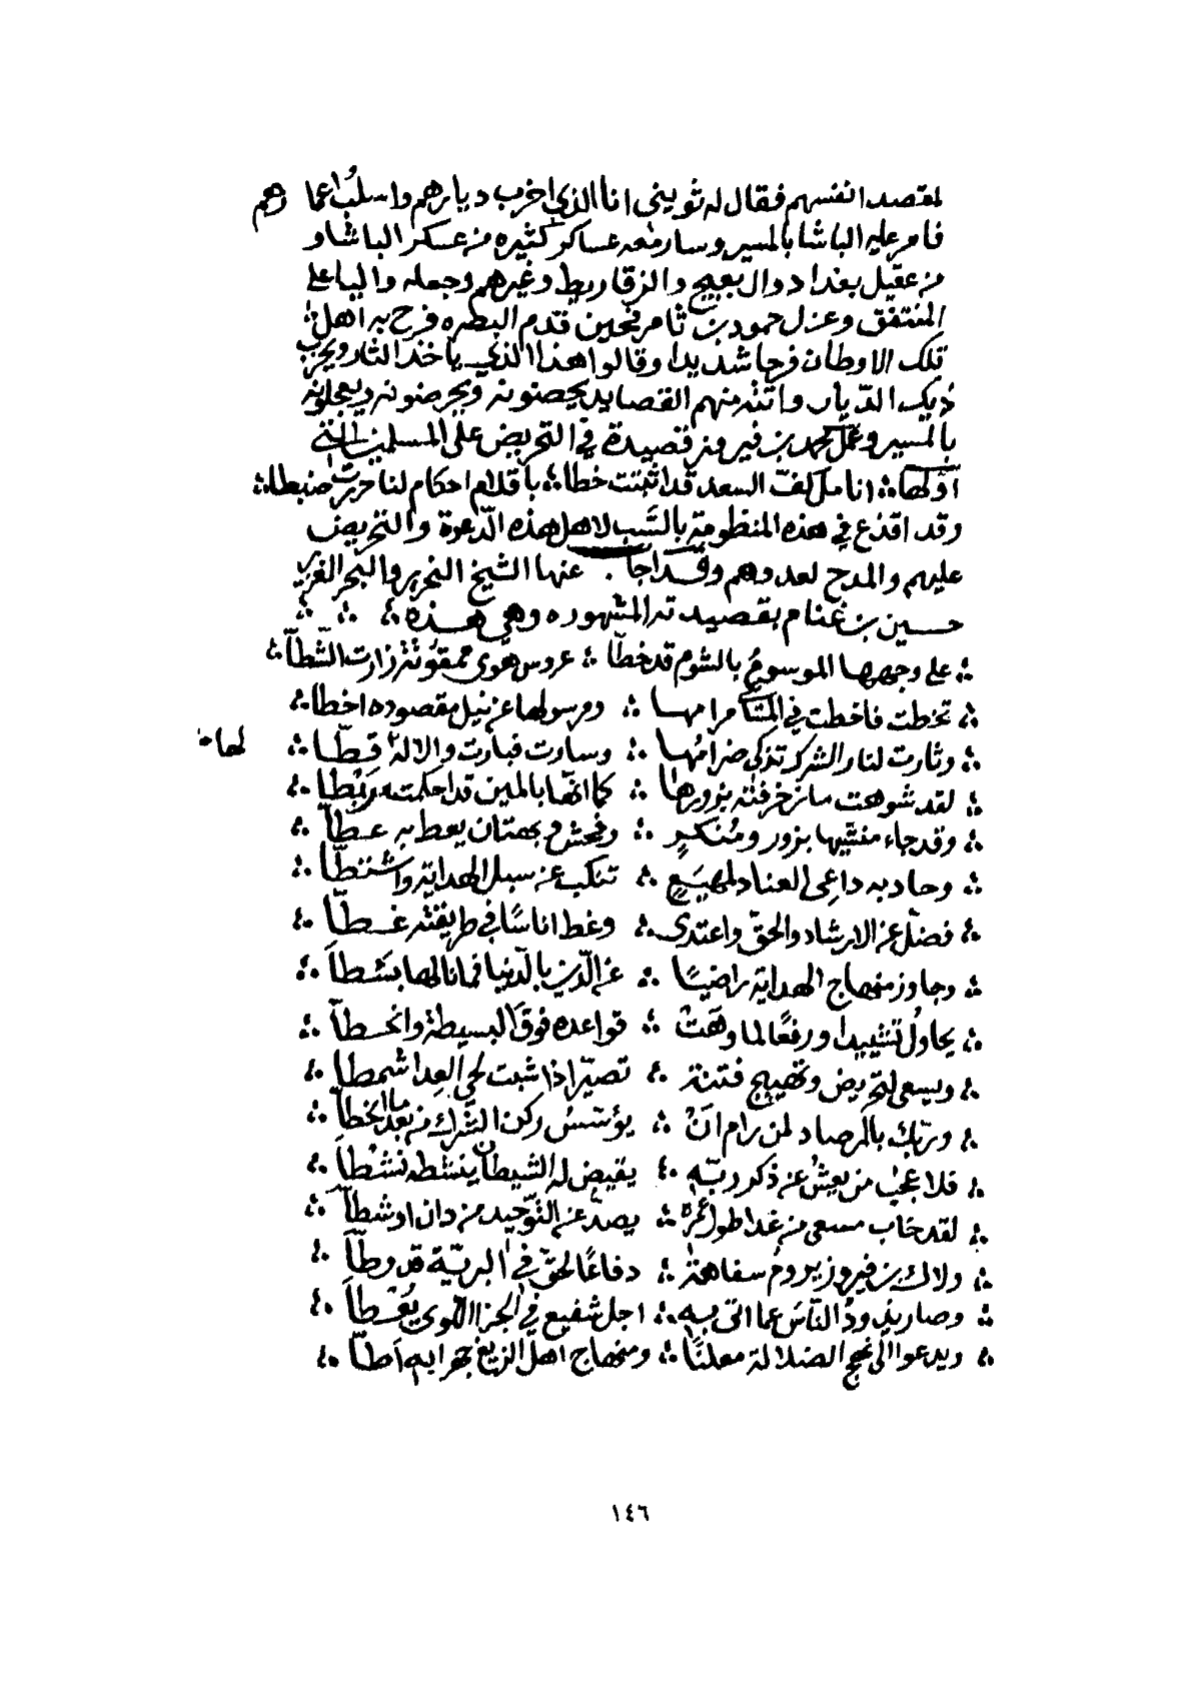 لمقصد انفسهم فقال له ثويني انا الذي اخرب ديارهم واسلب اعمارهم
فامر عليه الباشا بالمسير وسار معه عساكر كثيره من عسكر الباشا و
من عقيل بغداد وال بعيج والزقاريط وغيرهم وجعله واليا على
المنتفق وعزل حمود بن ثامر فحين قدم البصره فرح به اهل
تلك الاوطان فرحا شديدا وقالوا هذا الذي ياخذ الثار ويخرب
ذيك الديار واتته منهم القصايد يحضونه ويحرضونه ويعجلونه
بالمسير وعمل محمد بن فيروز قصيدة في التحريض على المسلمين التي
اولها ؛ انامل كف السعد قد اثبتت خطا ؛ باقلام احكام لنا حررت ضبطا ؛
وقد اقذع في هذه المنظومة بالسب لاهل هذه الدعوة والتحريض
عليهم والمدح لعدوهم وقد اجا. عنها الشيخ النحرير والبحر الغزير
حسين بن غنام بقصيدته المشهوره وهي هذه ؛
؛ على وجهها الموسوم بالشوم قد خطّا ؛ عروس هوى ممقوتة زارت الشطّا ؛
؛ تخطت فاخطت في المشا مرامها ؛ ومرسولها عن نيل مقصوده اخطا ؛
؛ وثارت لنار الشرك تذكى ضرامها ؛ وسارت فبارت والاله لها قطّا ؛
؛ لقد شوهت ما زخرفته بزورها ؛ كما انّها بالمين قد احكمت ربطا ؛
؛ وقد جاء منشيها بزور ومنكرٍ ؛ وفحش وبهتان يعط به عطّا ؛
؛ وحاد به داعي العناد لمهيعٍ ؛ تنكب عن سبل الهداية واشتطّا ؛
؛ فضلّ عن الارشاد والحق واعتدى ؛ وغط اناسًا في طريقته غطّا ؛
؛ وجاوز منهاج الهداية راضيًا ؛ عن الدّين بالدّنيا فما نالها بسطا ؛
؛ يحاول تشييدا ورفعًا لما وهت ؛ قواعده فوق البسيطة وانحطّا ؛
؛ ويسعى لتحريض وتهييج فتنة ؛ تصيّر اذا شبت لحى العدا شمطا ؛
؛ وربّك بالمرصاد لمن رام انْ ؛ يؤسّس ركن الشرك من بعد ما انحطّا ؛
؛ فلا عجب من يعش عن ذكر ربّه ؛ يقيض له الشيطان ينشطه نشطا ؛
؛ لقد خاب مسعى من غدا طول عمره ؛ يصدّ عن التوّحيد من دان او شطّا ؛
؛ ولاك بن فيروز يروم سفاهة ؛ دفاعًا لحقّ في البريّة قد وطّا ؛
؛ وصار يذود النّاس عما اتى به ؛ اجل شفيع في الجزا اللوى يعطا ؛
؛ ويدعوا الى نهج الضلالة معلنًا ؛ ومنهاج اهل الزيغ جهرا به اطّا ؛
١٤٦